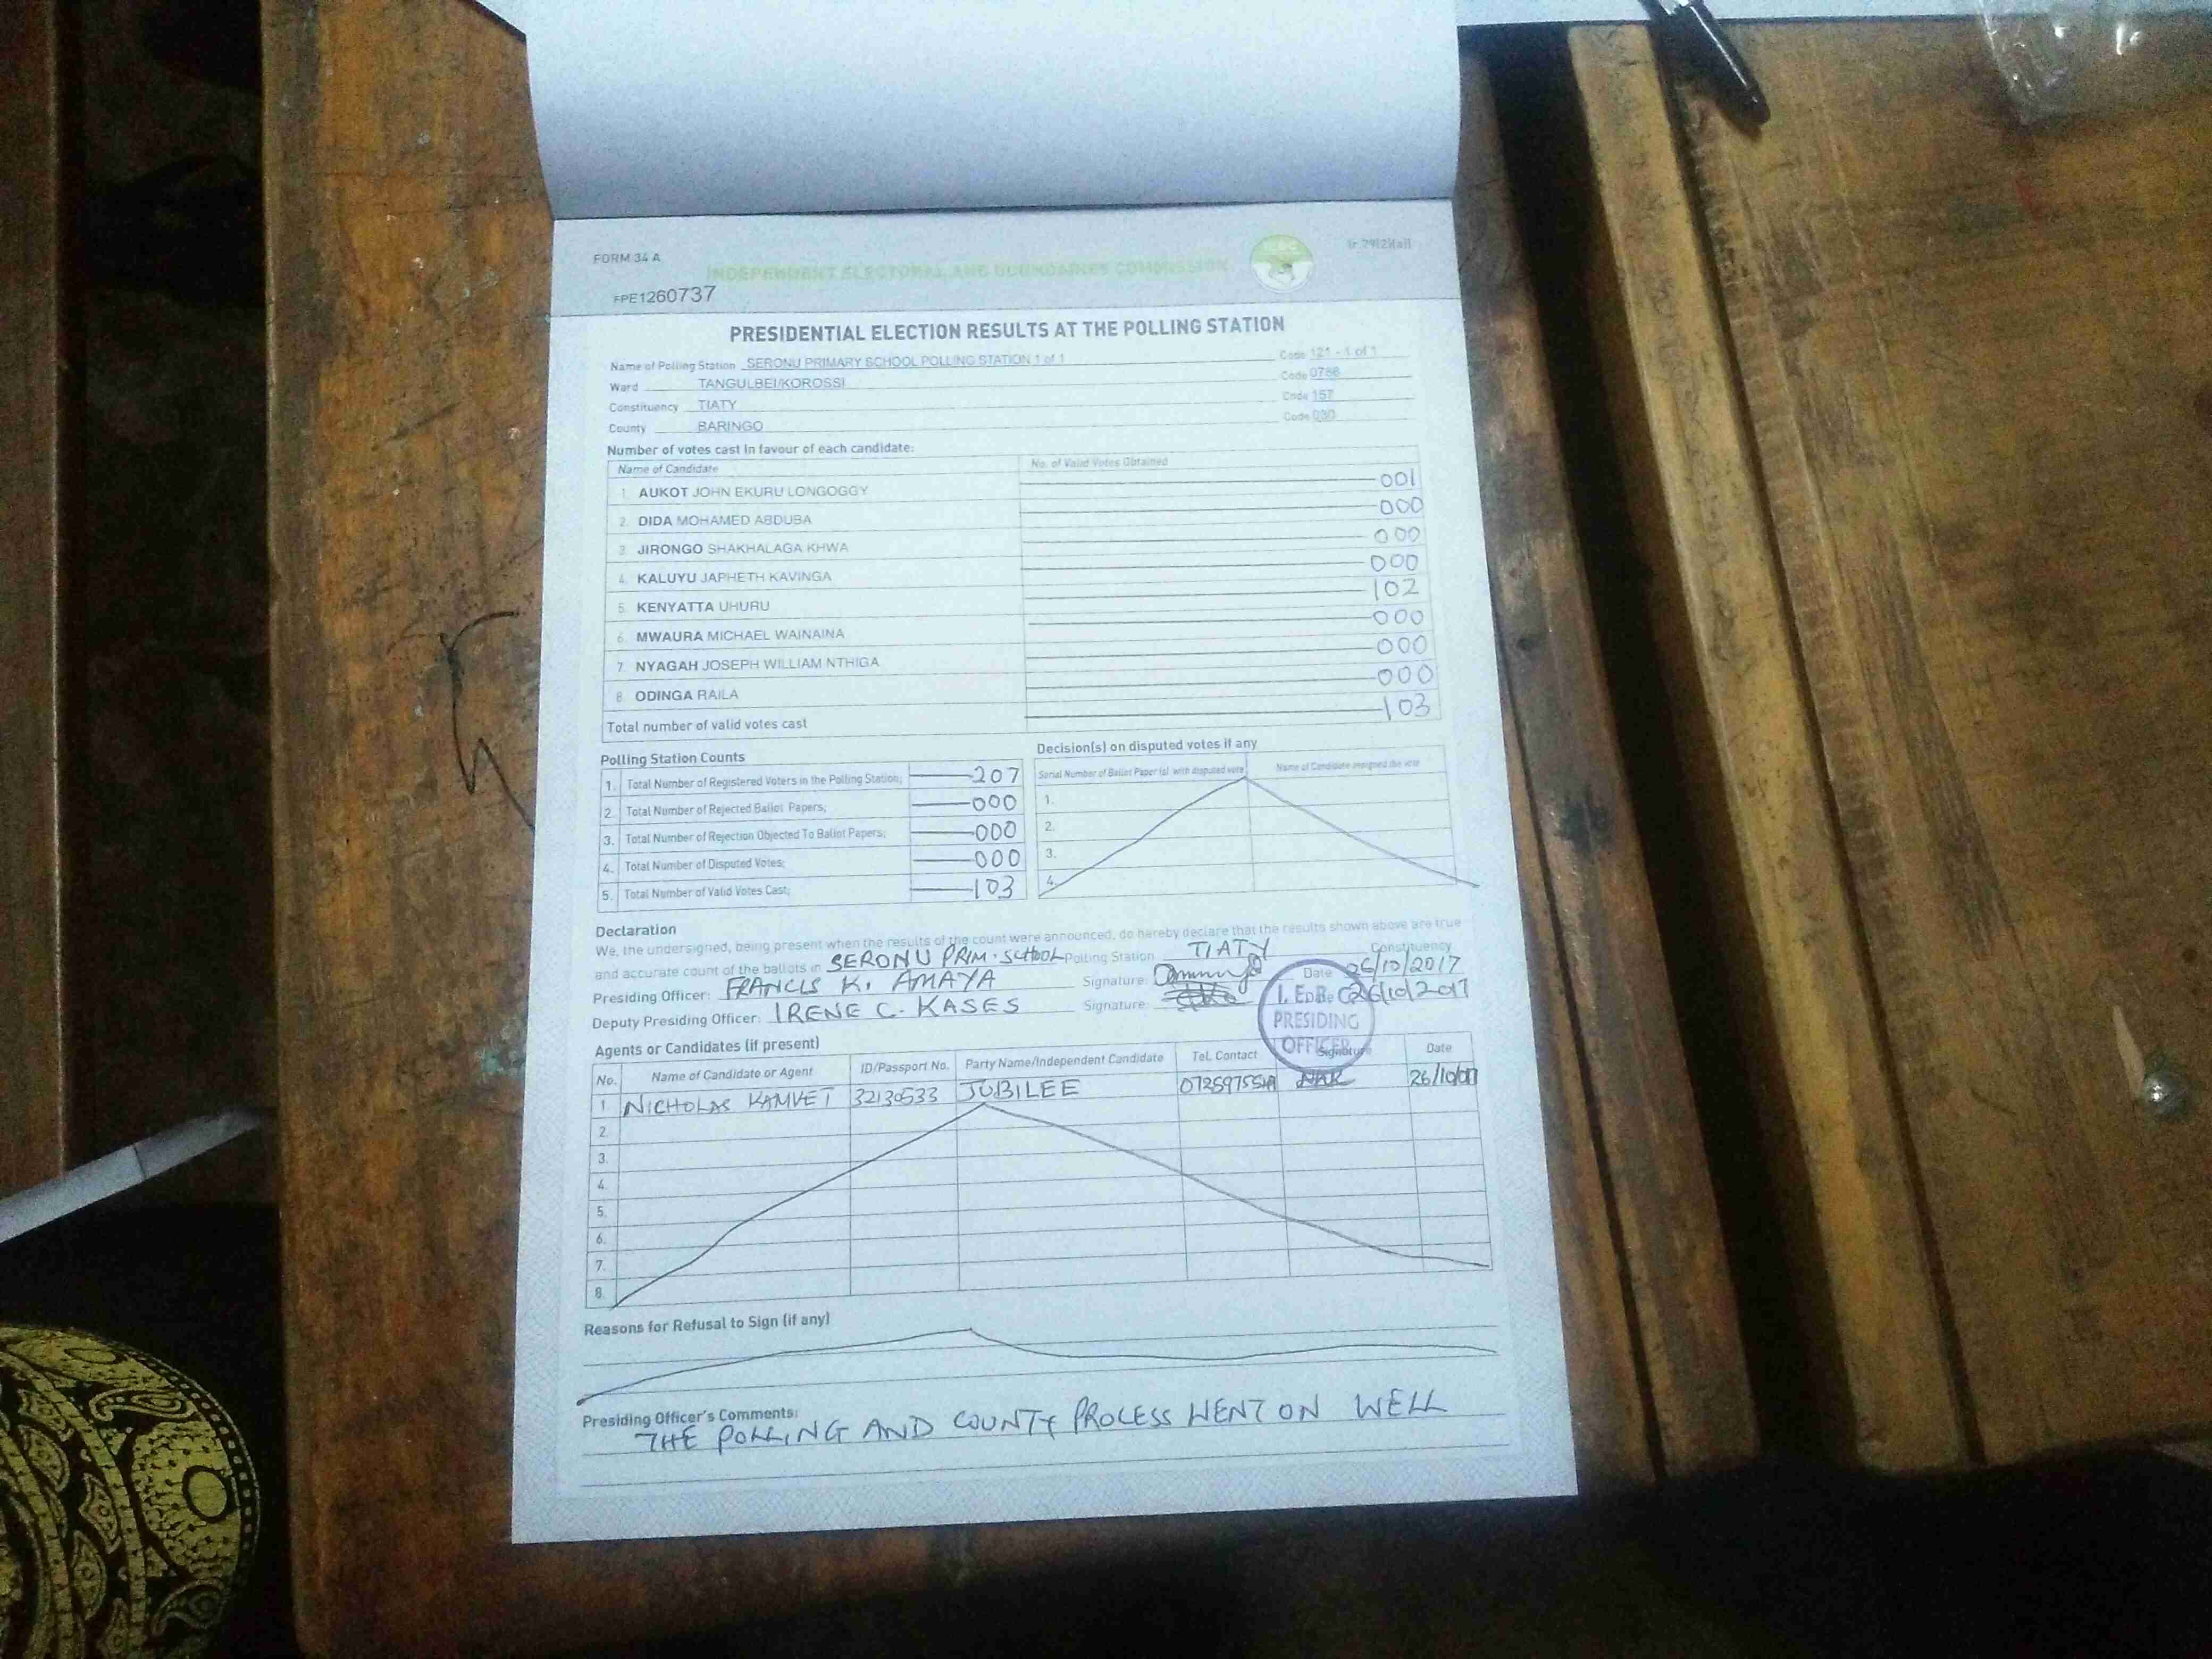 FORM 34 A
INDEPENDENT ELECTORAL AND BOUNDARIES COMMISSION
FPE1260737
PRESIDENTIAL ELECTION RESULTS AT THE POLLING STATION
Name of Polling Station SERONU PRIMARY SCHOOL POLLING STATION 1 of 1 Code 121 - 1 of 1
Ward TANGULBEI/KOROSSI Code 0786
Constituency TIATY Code 157
County BARINGO Code 030
Number of votes cast in favour of each candidate:
Name of Candidate No. of Valid Votes Obtained
1. AUKOT JOHN EKURU LONGOGGY 001
2. DIDA MOHAMED ABDUBA 000
3. JIRONGO SHAKHALAGA KHWA 000
4. KALUYU JAPHETH KAVINGA 000
5. KENYATTA UHURU 102
6. MWAURA MICHAEL WAINAINA 000
7. NYAGAH JOSEPH WILLIAM NTHIGA 000
8. ODINGA RAILA 000
Total number of valid votes cast 103
Polling Station Counts
1. Total Number of Registered Voters in the Polling Station; 207
2. Total Number of Rejected Ballot Papers; 000
3. Total Number of Rejection Objected To Ballot Papers; 000
4. Total Number of Disputed Votes; 000
5. Total Number of Valid Votes Cast; 103
Decision(s) on disputed votes if any
Serial Number of Ballot Paper (s) with disputed vote Name of Candidate assigned the vote
1.
2.
3.
4.
Declaration
We, the undersigned, being present when the results of the count were announced, do hereby declare that the results shown above are true
and accurate count of the ballots in SERONU PRIM. SCHOOL Polling Station TIATY Constituency
Presiding Officer: FRANCIS K. AMAYA Signature: Date 26/10/2017
Deputy Presiding Officer: IRENE C. KASES Signature: 26/10/2017
PRESIDING
OFFICER
Agents or Candidates (if present)
No. Name of Candidate or Agent ID/Passport No. Party Name/Independent Candidate Tel. Contact Signature Date
1. NICHOLAS KAMVET 32130533 JUBILEE 26/10/017
2.
3.
4.
5.
6.
7.
8.
Reasons for Refusal to Sign (if any)
Presiding Officer's Comments:
THE POLLING AND COUNTY PROCESS WENT ON WELL